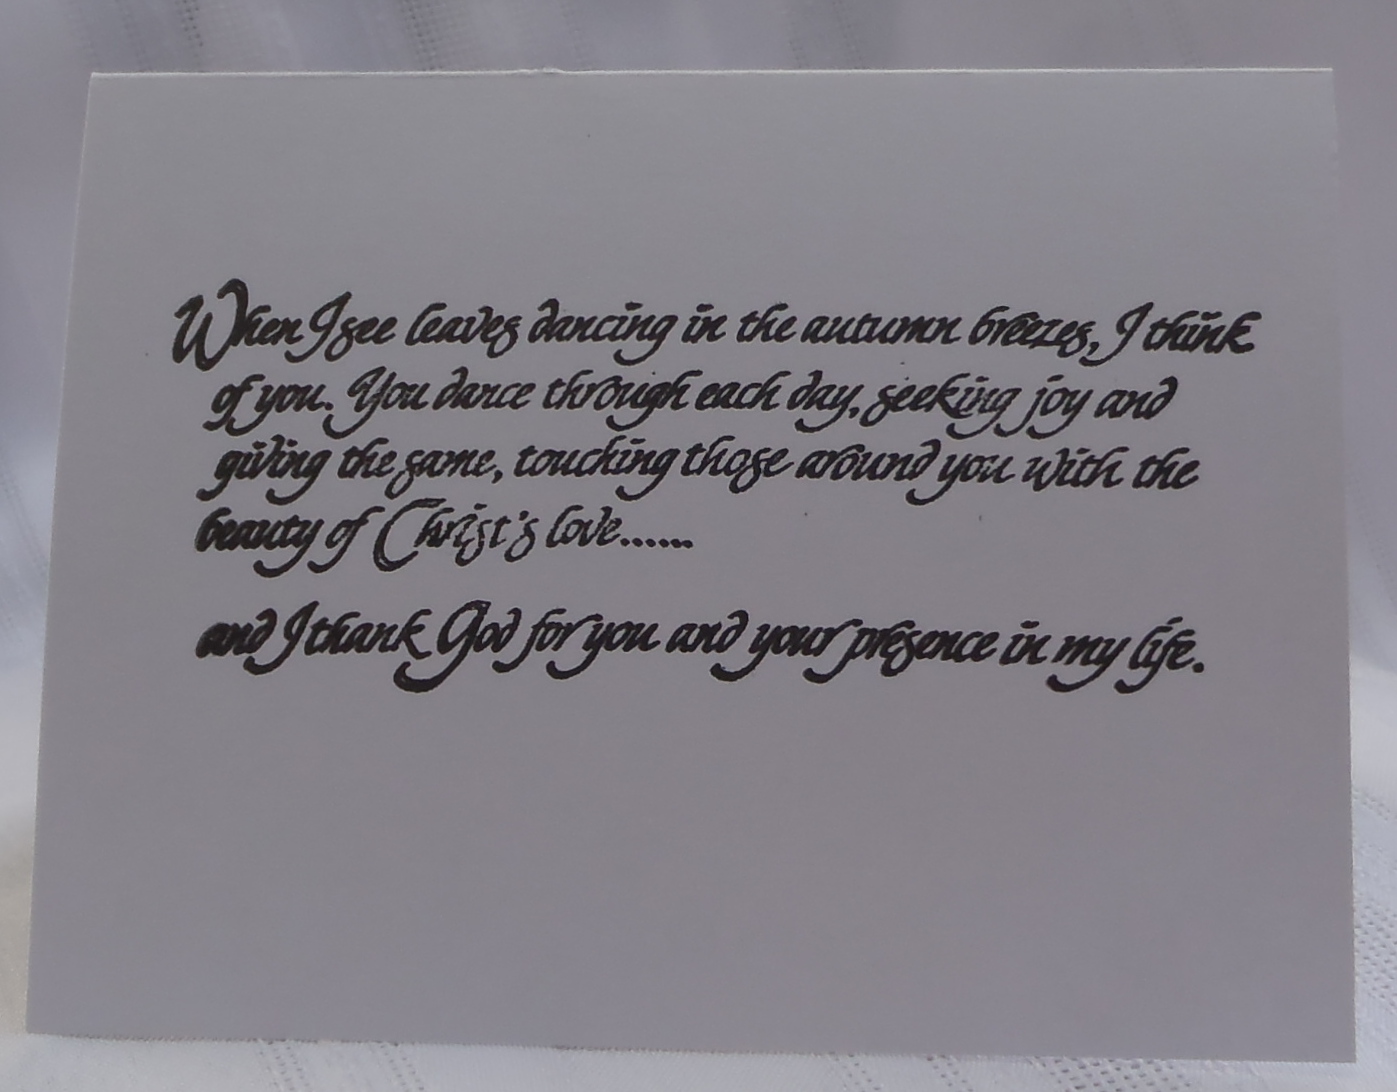 When I see leaves dancing in the autumn breezes, I think
of you. You dance through each day, seeking joy and
giving the same, touching those around you with the
beauty of Christ's love......
and I thank God for you and your presence in my life.